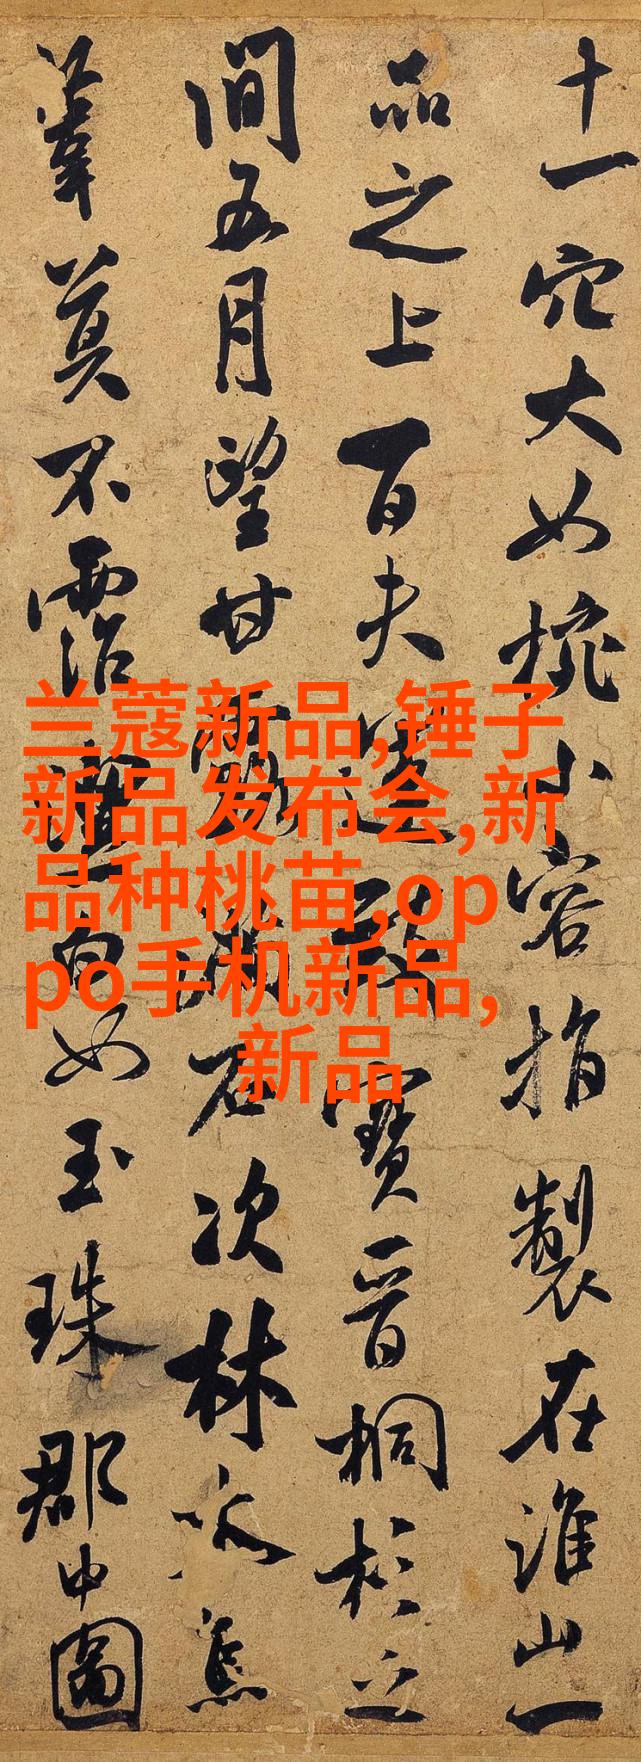 十一穴大如椀小容指製在淮山一
品之上百夫致寶晉桐杉之
間五月望甘石次林焦
葦莫不霑白如玉珠郡中圖
兰蔻新品,锤子
新品发布会,新
品种桃苗,op
po手机新品,
新品